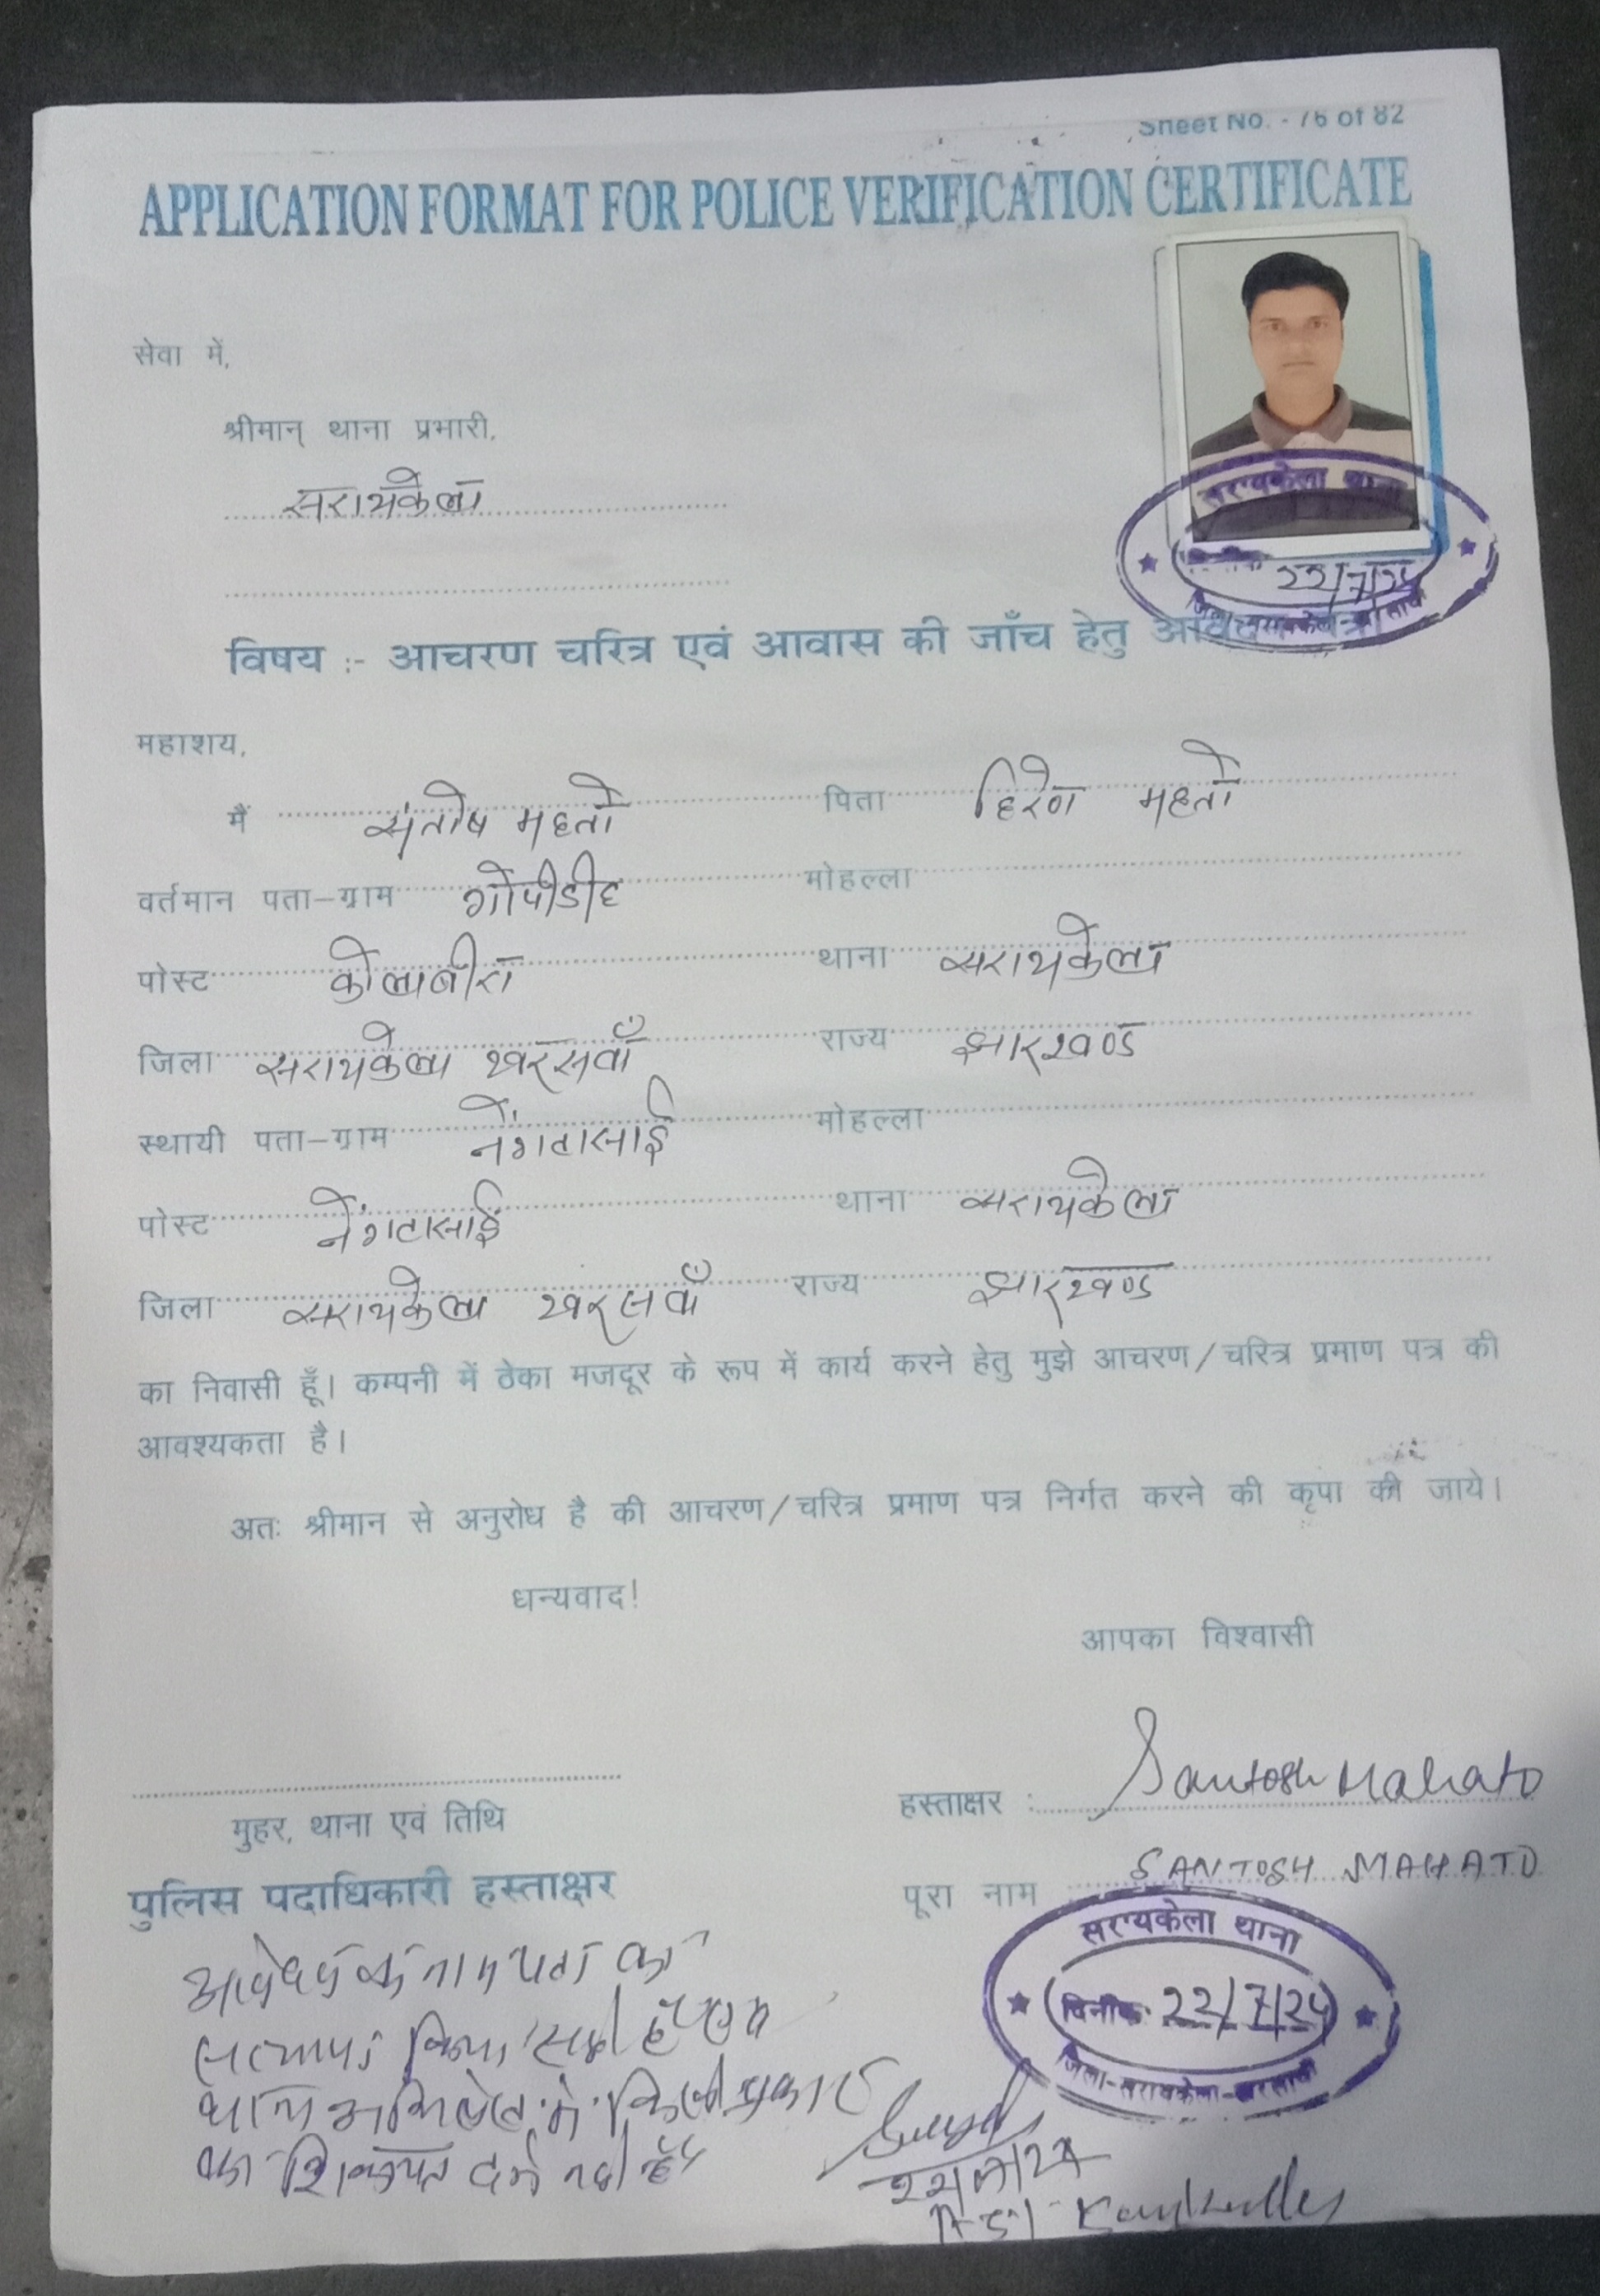 Sheet No. - 76 of 82
APPLICATION FORMAT FOR POLICE VERIFICATION CERTIFICATE
सेवा में,
श्रीमान् थाना प्रभारी,
सरायकेला
सरायकेला थाना
22/7/24
विषय :- आचरण चरित्र एवं आवास की जाँच हेतु
महाशय,
मैं संतोष महतो पिता हिरेण महतो
वर्तमान पता-ग्राम गोपीडीह मोहल्ला
पोस्ट कोलाबीरा थाना सरायकेला
जिला सरायकेला खरसवाँ राज्य झारखण्ड
स्थायी पता-ग्राम नेंगटासाई मोहल्ला
पोस्ट नेंगटासाई थाना सरायकेला
जिला सरायकेला खरसवाँ राज्य झारखण्ड
का निवासी हूँ। कम्पनी में ठेका मजदूर के रूप में कार्य करने हेतु मुझे आचरण/चरित्र प्रमाण पत्र की
आवश्यकता है।
अतः श्रीमान से अनुरोध है की आचरण/चरित्र प्रमाण पत्र निर्गत करने की कृपा की जाये।
धन्यवाद!
आपका विश्वासी
हस्ताक्षर : Santosh Mahato
मुहर, थाना एवं तिथि
पूरा नाम SANTOSH MAHATO
पुलिस पदाधिकारी हस्ताक्षर
सरायकेला थाना
दिनांक 22/7/24
जिला-सरायकेला-खरसावाँ
का
किया
थाना अभिलेख में किसी प्रकार
का शिकायत दर्ज नहीं है
22/07/24